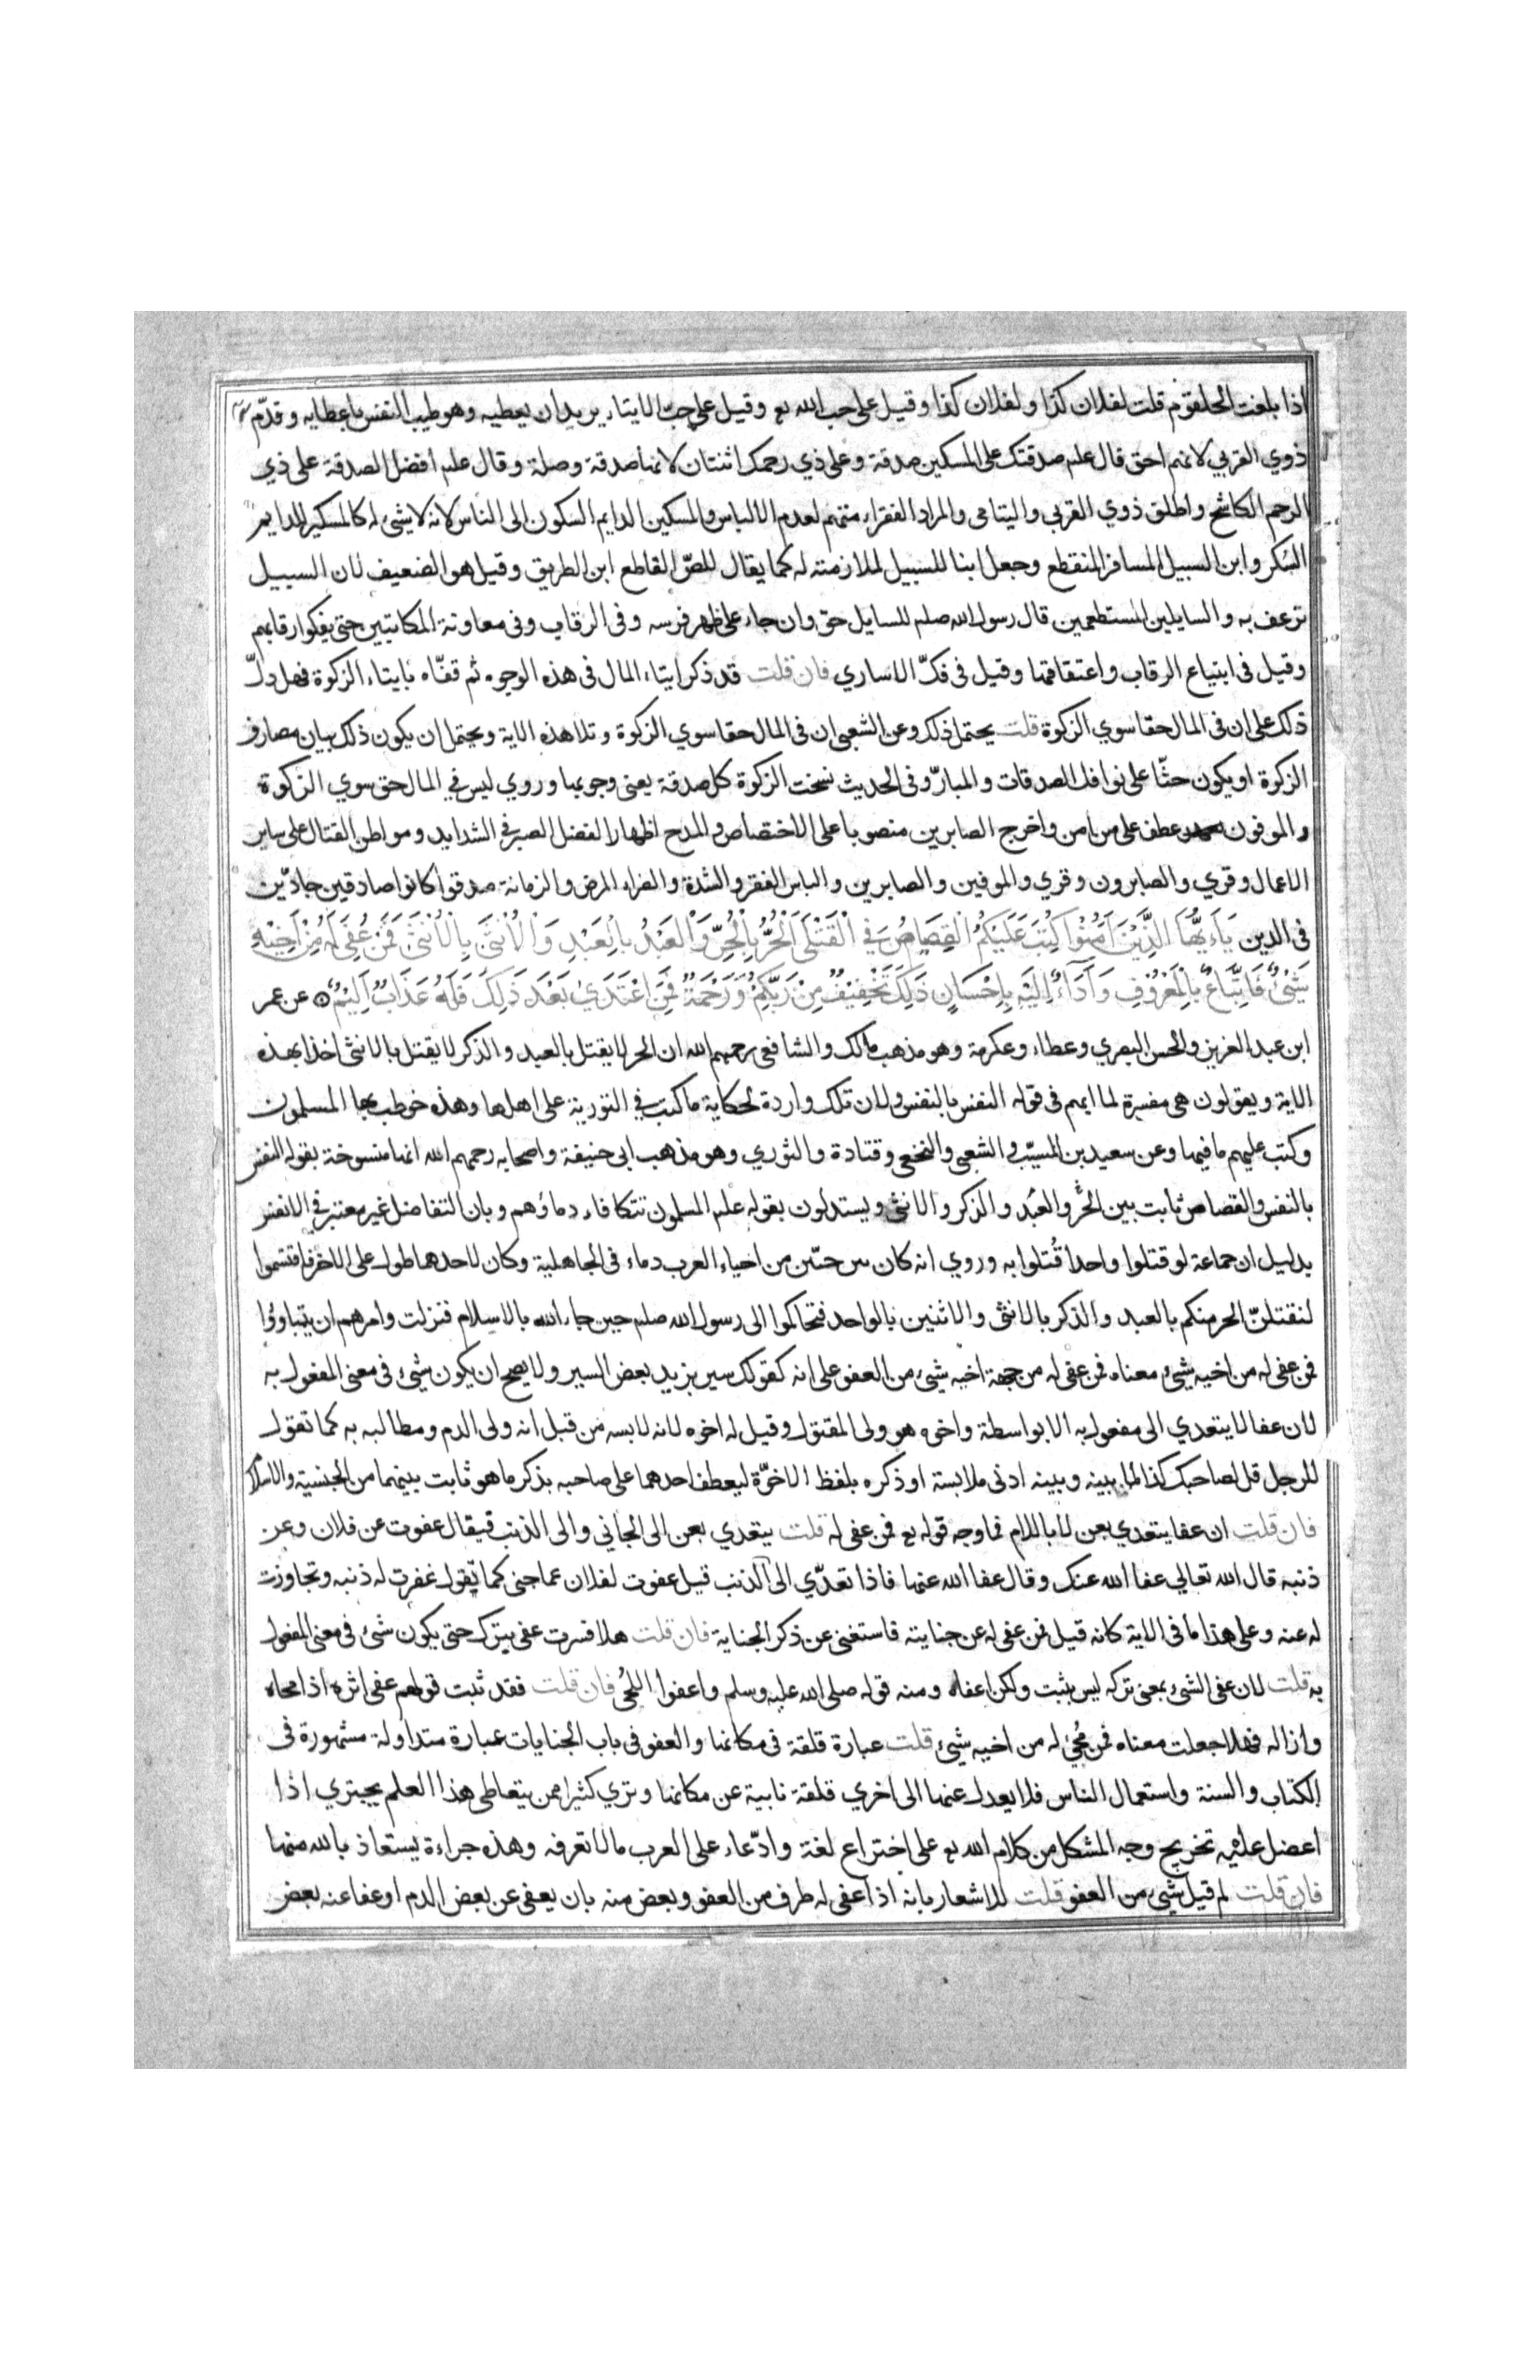 اذا بلغت الحلقوم قلت لفلان كذا ولفلان كذا وقيل على حب الله تع وقيل على حب الايتاء يريد ان يعطيه وهو طيب النفس باعطايه وقدّم
ذوي القربي لانهم احق قال علم صدقتك على المسكين صدقة وعلى ذي رحمك اثنتان لانها صدقة وصلة وقال علم افضل الصدقة على ذي
الرحم الكاشح واطلق ذوي القربي واليتامى والمراد الفقراء منهم لعدم الالباس والمسكين الدايم السكون الى الناس لانه لا شيء له كالمسكير للدايم
السكر وابن السبيل المسافر المنقطع وجعل ابنا للسبيل لملازمته له كما يقال للصّ القاطع ابن الطريق وقيل هو الضعيف لان السبيل
ترعف به والسايلين المستطعمين قال رسول الله صلم للسايل حق وان جاء على ظهر فرسه وفى الرقاب وفى معاونة المكاتبين حتى يفكوا رقابهم
وقيل فى ابتياع الرقاب واعتقاقها وقيل فى فكّ الاساري فان قلت قد ذكر ايتاء المال فى هذه الوجوه ثم قفّاه بايتاء الزكوة فهل دلّ
ذلك على ان فى المال حقا سوي الزكوة قلت يحتمل ذلك وعن الشعبى ان فى المال حقا سوي الزكوة وتلا هذه الاية ويحتمل ان يكون ذلك بيان مصارف
الزكوة او يكون حثّا على نوافل الصدقات والمبارّ وفى الحديث نسخت الزكوة كل صدقة يعنى وجوبها وروي ليس في المال حق سوي الزكوة
والموفون عطف على من امن واخرج الصابرين منصوبا على الاختصاص والمدح اظهارا لفضل الصبر فى الشدايد ومواطن القتال على ساير
الاعمال وقري والصابرون وقري والموفين والصابرين والباس الفقر والشدة والضراء المرض والزمانة صدقوا كانوا صادقين جادّين
فى الدين يَاءَيُّهَا الَّذِينَ آمَنُوا كُتِبَ عَلَيْكُمُ الْقِصَاصُ فِي الْقَتْلَى اَلْحُرُّ بِالْحُرِّ وَالْعَبْدُ بِالْعَبْدِ وَالْاُنْثَىَ بِالْاُنْثَىَ فَمَنْ عُفِيَ لَهُ مِنْ اَخِيْهِ
شَيْئٌ فَاتِّبَاعٌ بِالْمَعْرُوفِ وَآَدَآءٌ اِلَيْهِ بِاِحْسَانٍ ذَلِكَ تَخْفِيْفٌ مِنْ رَبِّكُمْ وَرَحْمَةٌ فَمَنِ اعْتَدَيَ بَعْدَ ذَلِكَ فَلَهُ عَذَابٌ اَلِيْمٌ عن عمر
ابن عبد العزيز والحسن البصري وعطاء وعكرمة وهو مذهب مالك والشافعى رحمهم الله ان الحر لا يقتل بالعبد والذكر لا يقتل بالانثى اخذا بهذه
الاية ويقولون هى مفسرة لما ابهم فى قوله النفس بالنفس ولان تلك واردة لحكاية ما كتب في التورية على اهلها وهذه خوطب بها المسلمون
وكتب عليهم ما فيها وعن سعيد بن المسيّب والشعبى والنخعى وقتادة والثوري وهو مذهب ابى حنيفة واصحابه رحمهم الله انها منسوخة بقوله النفس
بالنفس والقصاص ثابت بين الحُر والعَبْد والذكر والانثى ويستدلون بقوله علم المسلمون تتكافاء دماؤهم وبان التفاضل غير معتبر في الانفس
بدليل ان جماعة لو قتلوا واحدا قُتلوا به وروي انه كان بين حيّين من احياء العرب دماء فى الجاهلية وكان لاحدهما طول على الاخر فاقتسموا
لنقتلنّ الحر منكم بالعبد والذكر بالانثى والاثنين بالواحد فتحاكموا الى رسول الله صلم حين جاء الله بالاسلام فنزلت وامرهم ان يتباوؤا
فمن عفى له من اخيه شيئ معناه فمن عفى له من جهة اخيه شيئ من العفو على انه كقولك سير بزيد بعض السير ولا يصح ان يكون شيئ فى معنى المفعول به
لان عفا لا يتعدي الى مفعول به الا بواسطة واخوه هو ولى المقتول وقيل له اخوه لانه لابسه من قبل انه ولى الدم ومطالبه به كما تقول
للرجل قل لصاحبك كذا لما بينه وبينه ادنى ملابسة او ذكره بلفظ الاخوّة ليعطف احدهما على صاحبه بذكر ما هو ثابت بينهما من الجنسية والاسلام
فان قلت ان عفا يتعدي بعن لا باللام فما وجه قوله تع فمن عفى له قلت يتعدي بعن الى الجاني والى الذنب فيقال عفوت عن فلان وعن
ذنبه قال الله تعالي عفا الله عنك وقال عفا الله عنها فاذا تعدّي الى الذنب قيل عفوت لفلان عما جنى كما تقول غفرت له ذنبه وتجاوزت
له عنه وعلى هذا ما فى الاية كانه قيل فمن عفى له عن جنايته فاستغنى عن ذكر الجناية فان قلت هلا فسرت عفى بترك حتى يكون شئ فى معنى المفعول
به قلت لان عفى الشئ بمعنى تركه ليس بثبت ولكن اعفاه ومنه قوله صلى الله عليه وسلم واعفوا اللحى فان قلت فقد ثبت قولهم عفى اثره اذا محاه
وازاله فهلا جعلت معناه فمن مُحِيَ له من اخيه شيئ قلت عبارة قلقة فى مكانها والعفو فى باب الجنايات عبارة متداولة مشهورة فى
الكتاب والسنة واستعمال الناس فلا يعدل عنها الى اخري قلقة نابية عن مكانها وتري كثيرا ممن يتعاطى هذا العلم يجتري اذا
اعضل عليه تخريج وجه المشكل من كلام الله تع على اختراع لغة وادّعاء على العرب ما لا تعرفه وهذه جراءة يستعاذ بالله منها
فان قلت لم قيل شيئ من العفو قلت للاشعار بانه اذا عفى له طرف من العفو وبعض منه بان يعفى عن بعض الدم او عفا عنه بعض